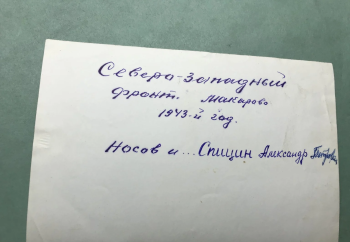 Северо-западный
фронт. Макарово
1943-й год.
Носов и... Спицин Александр Петрович